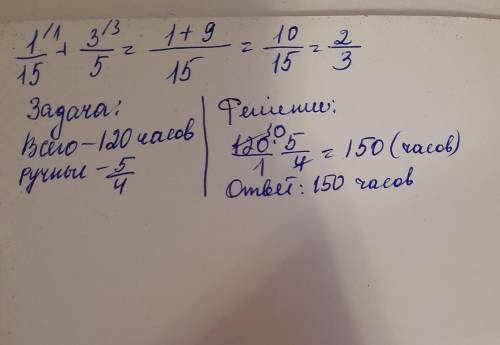 1/15 /1 + 3/5 /3 = 1+9/15 = 10/15 = 2/3
Задача:
Всего – 120 часов
ручные – 5/4
Решение:
120/1 30 · 5/4 = 150 (часов)
Ответ: 150 часов